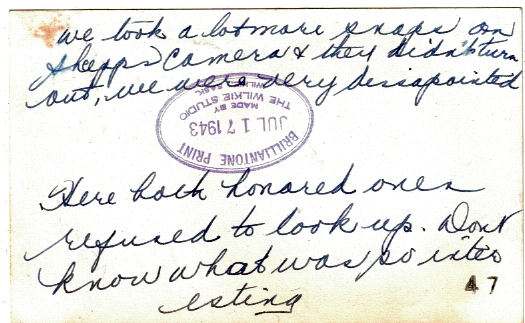 we took a lot more snaps on
shepps camera & they didn't turn
out, we were very dissapointed
BRILLIANTONE PRINT
JUL 17 1943
MADE BY
THE WILKIE STUDIO
WILKIE, SASK.
Here both honored ones
refused to look up. Dont
know what was so inter
esting
47